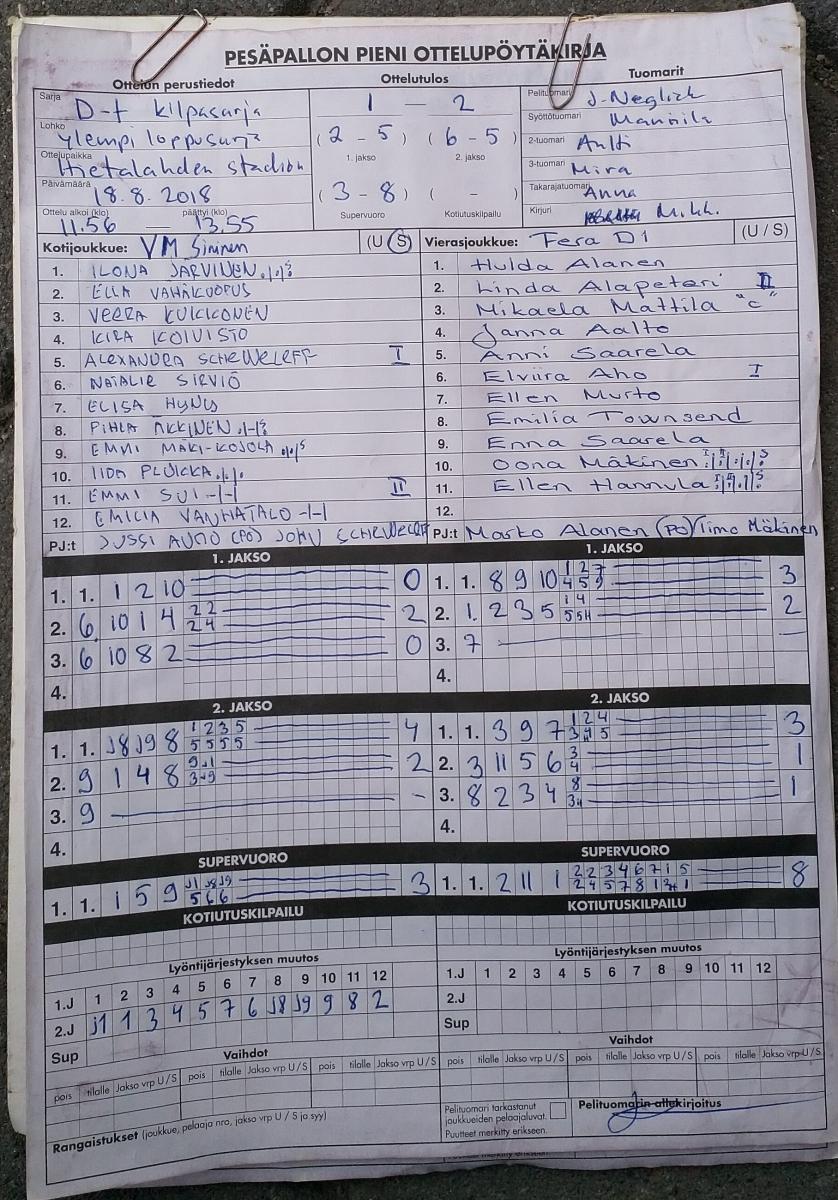 PESÄPALLON PIENI OTTELUPÖYTÄKIRJA
Ottelun perustiedot
Ottelutulos
Tuomarit
Sarja D-t kilpasarja
Lohko ylempi loppusarja
Ottelupaikka Hietalahden stadion
Päivämäärä 18.8.2018
Ottelu alkoi (klo) päättyi (klo)
11.56 — 13.55
1 — 2
(2 - 5) (6 - 5)
1. jakso 2. jakso
(3 - 8) ( - )
Supervuoro Kotiutuskilpailu
Pelituomari J. Neglick
Syöttötuomari Mannila
2-tuomari Antti
3-tuomari Mira
Takarajatuomari Anna
Kirjuri M.kk.
Kotijoukkue: VM Sininen (U / S)
1. ILONA JÄRVINEN
2. ELLA VÄHÄKUOPUS
3. VEERA KUKKONEN
4. KIRA KOIVISTO
5. ALEXANDRA SCHEWELEFF I
6. NATALIE SIRVIÖ
7. ELISA HYNYS
8. PIHLA ÄKKINEN
9. EMMI MÄKI-KOJOLA
10. IIDA PLUKKA
11. EMMI SUI -|-| II
12. EMILIA VANHATALO -|-|
PJ:t JUSSI AUTIO (PO) JOHN SCHEWELEFF
Vierasjoukkue: Fera D1 (U / S)
1. Hulda Alanen
2. Linda Alapeteri II
3. Mikaela Mattila "c"
4. Janna Aalto
5. Anni Saarela
6. Elviira Aho I
7. Ellen Murto
8. Emilia Townsend
9. Enna Saarela
10. Oona Mäkinen
11. Ellen Hannula
12.
PJ:t Marko Alanen (PO) Timo Mäkinen
1. JAKSO
1. 1. 1 2 10 0
2. 6 10 1 4 2 2 2
2 4
3. 6 10 8 2 0
4.
1. JAKSO
1. 1. 8 9 10 1 2 7 3
4 5 9
2. 1. 2 3 5 1 4 2
5 5H
3. 7 —
4.
2. JAKSO
1. 1. J8 J9 8 1 2 3 5 4
5 5 5 5
2. 9 1 4 8 9 J1 2
3 9
3. 9 -
4.
2. JAKSO
1. 1. 3 9 7 1 2 4 3
3 4 5
2. 3 11 5 6 3 1
4
3. 8 2 3 4 8 1
3H
4.
SUPERVUORO
1. 1. 1 5 9 J1 J8 J9 3
5 6 6
SUPERVUORO
1. 1. 2 11 1 2 2 3 4 6 7 1 5 8
KOTIUTUSKILPAILU
KOTIUTUSKILPAILU
Lyöntijärjestyksen muutos
1.J 1 2 3 4 5 6 7 8 9 10 11 12
2.J J1 1 3 4 5 7 6 J8 J9 9 8 2
Sup
Lyöntijärjestyksen muutos
1.J 1 2 3 4 5 6 7 8 9 10 11 12
2.J
Sup
Vaihdot
pois tilalle Jakso vrp U / S pois tilalle Jakso vrp U / S pois tilalle Jakso vrp U / S
Vaihdot
pois tilalle Jakso vrp U / S pois tilalle Jakso vrp U / S pois tilalle Jakso vrp U / S
Rangaistukset (joukkue, pelaaja nro, jakso vrp U / S ja syy)
Pelituomari tarkastanut
joukkueiden pelaajaluvat.
Puutteet merkitty erikseen.
Pelituomarin allekirjoitus